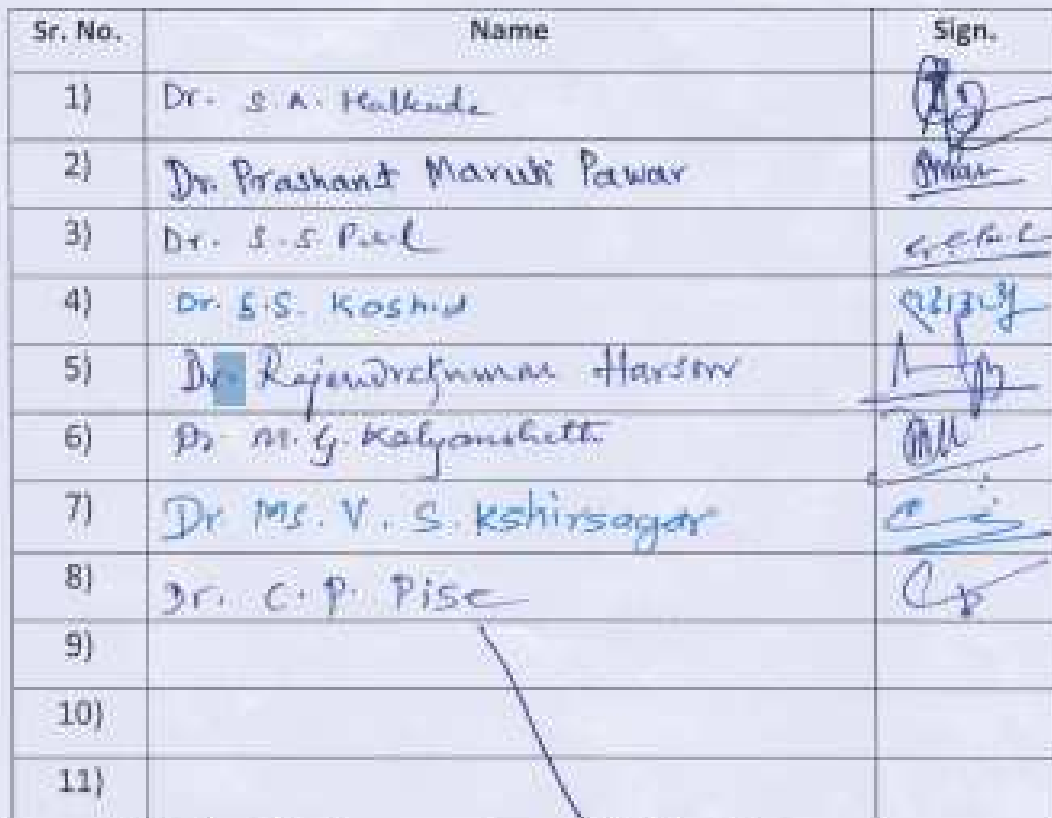 Sr. No. Name Sign.
1) Dr. S. A. Halkude
2) Dr. Prashant Maruti Pawar
3) Dr. S. S.
4) Dr. S.S. Koshid
5) Dr. Rajendrakumar
6) Dr M. G. Kalyanshetti
7) Dr Ms. V. S. Kshirsagar
8) Dr. C. P. Pise
9)
10)
11)